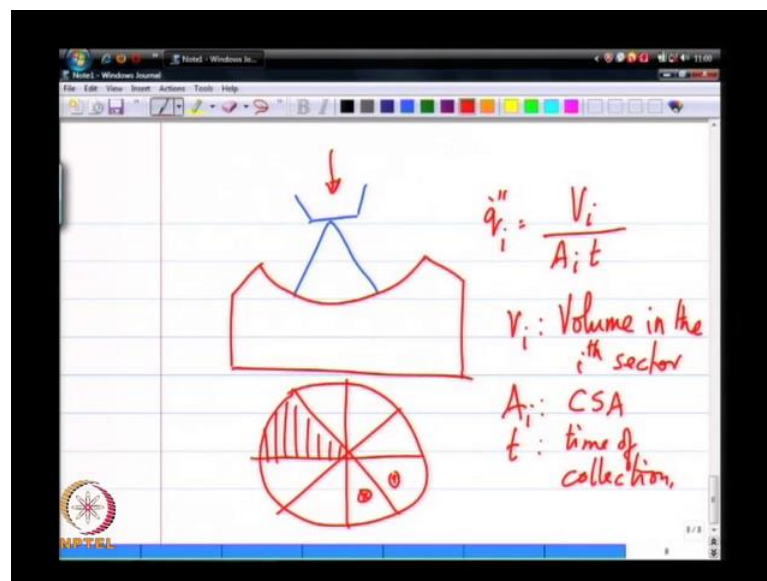 Note1 - Windows Jo...
11:00
Note1 - Windows Journal
File Edit View Insert Actions Tools Help
B I
q̇ᵢ" = Vᵢ / Aᵢ t
Vᵢ : Volume in the
iᵗʰ sector
Aᵢ : CSA
t : time of
collection.
1
2
8/8
8
NPTEL